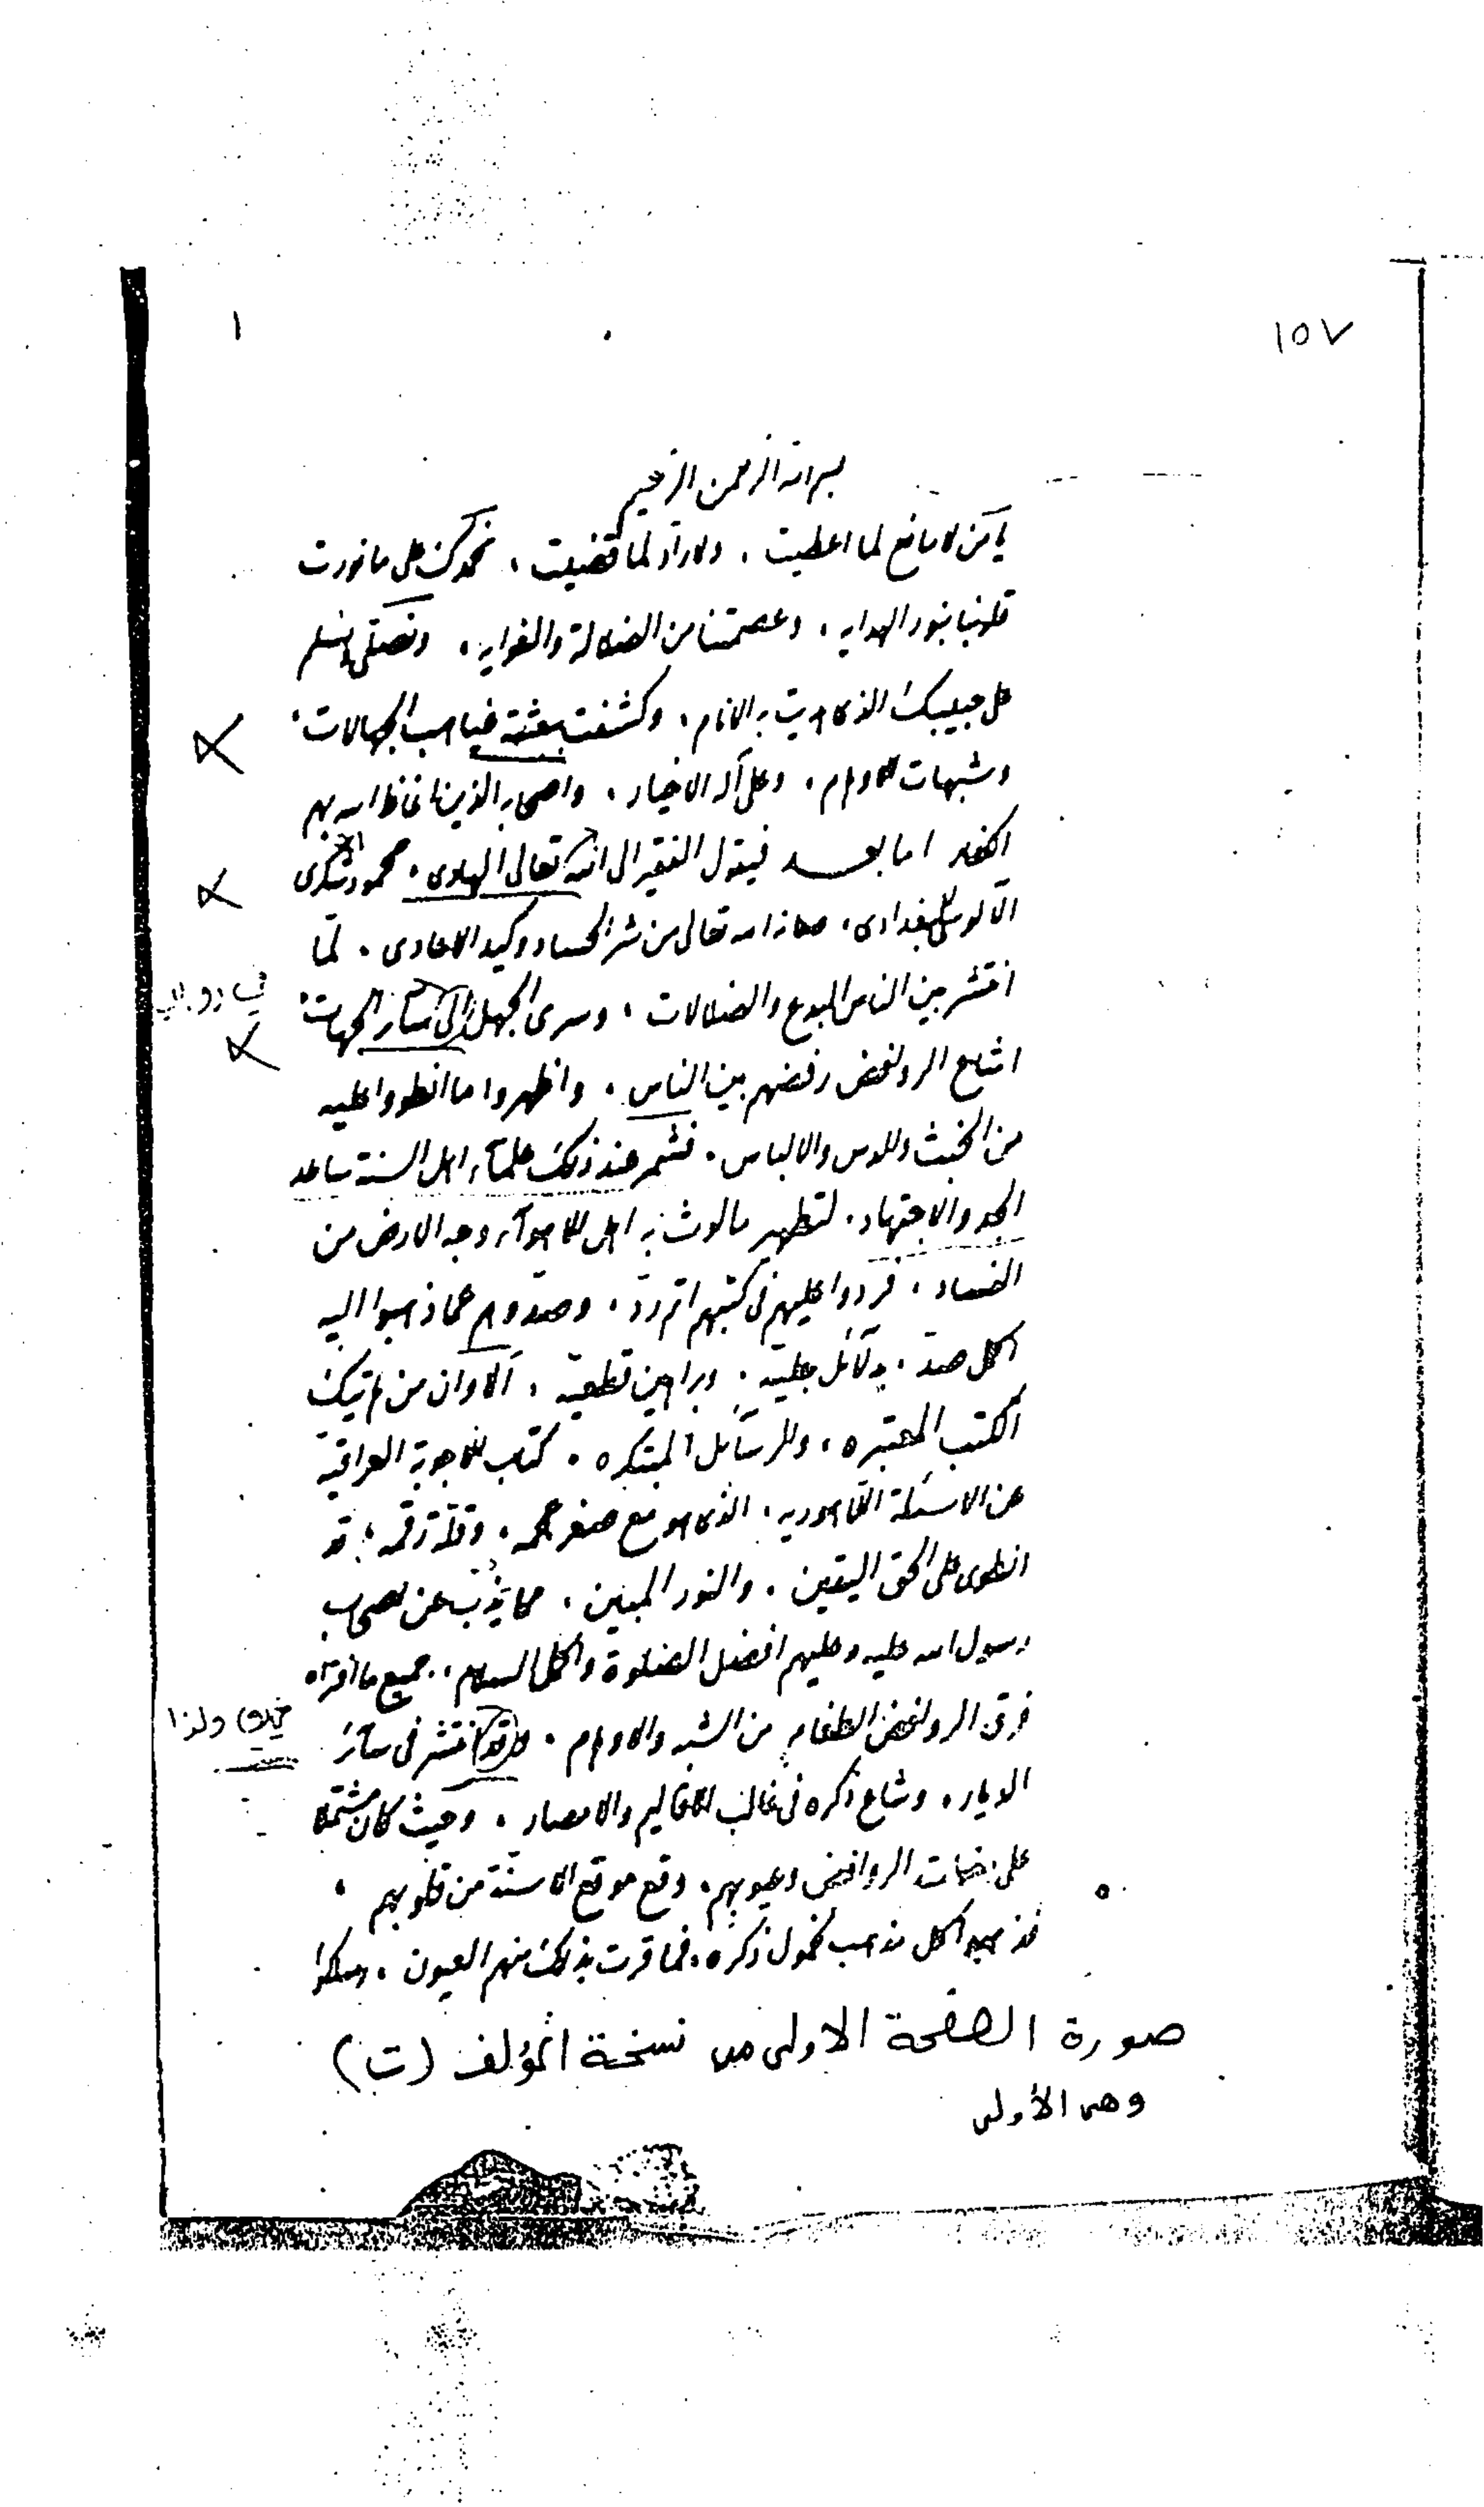 ١٥٧
١
بسم الله الرحمن الرحيم
يا من لا مانع لما اعطيت ، ولا رادّ لما قضيت ، نحمدك على ما نورت
قلوبنا بنور الهدايه ، وعصمتنا من الضلالة والغوايه ، ونصلّى ونسلم
على حبيبك الذى هديت به الانام ، وكشفت ببعثته غياهب الجهالات ،
وشبهات الاوهام ، وعلى آله الاخيار ، واصحابه الذين اغاظ الله بهم
الكفار اما بعـــد فيقول الفقير الى الله تعالى الهادى ، محمود شكرى
الآلوسى البغدادى ، صانه الله تعالى من شر الحساد وكيد الاعادى . لمّا
انتشر بين الناس البدع والضلالات ، وسرى الجهل الى سائر الجهات ،
اشاع الروافض رفضهم بين الناس ، واظهروا ما انطووا عليه
من الخبث والدس والالباس . فشمر عند ذلك علمآء اهل السنة ساعد
الجد والاجتهاد . لتطهير ما لوث به اهل الاهوآء وجه الارض من
الفساد ، فردوا عليهم فى كتبهم اتم ردّ ، وصدّوهم عما ذهبوا اليه
اكمل صدّ ، بدلآئل جليّه . وبراهين قطعيّه ، ألا وان من تيك
الكتب المعتبره ، والرسآئل المبتكره . كتاب الاجوبة العراقية
عن الاسئلة اللاهوريه ، الذى هو مع صغر حجمه ، وقلّة رقمه ، قد
انطوى على الحق اليقين . والنور المبين . مما يذبّ عن اصحاب
رسول الله عليه وعليهم افضل الصلوة واكمل السلام ، جميع ما افتراه
فرق الروافض الطغام من الشبه والاوهام . قد انتشر فى سآئر
ولذا
الديار ، وشاع ذكره فى غالب الاقاليم والامصار . وحيث كان مشتملا
على الروافض وعيوبهم ، وقع موقع الاسنّة من قلوبهم ،
فذهبوا كل مذهب لخمول ذكره ، فما قرت بذلك منهم العيون ، وسلكوا
صورة الصفحة الاولى من نسخة المؤلف (ت)
وهى الأولى